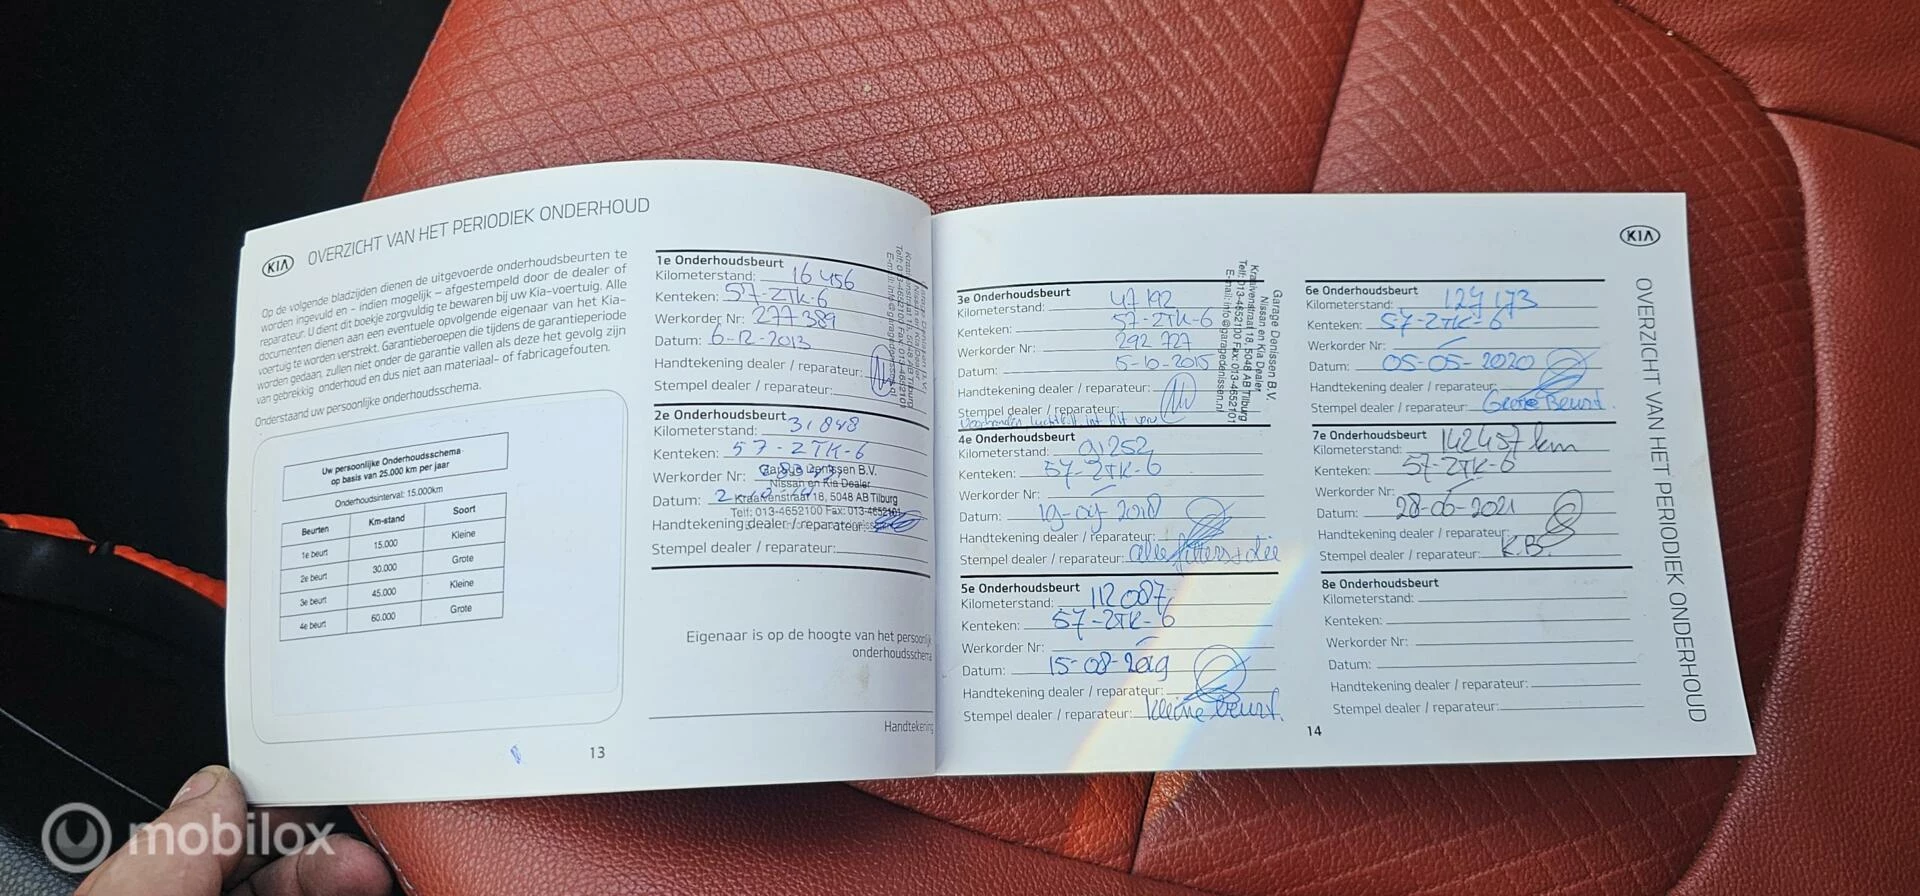 KIA
OVERZICHT VAN HET PERIODIEK ONDERHOUD
Op de volgende bladzijden dienen de uitgevoerde onderhoudsbeurten te
worden ingevuld en – indien mogelijk – afgestempeld door de dealer of
reparateur. U dient dit boekje zorgvuldig te bewaren bij uw Kia-voertuig. Alle
documenten dienen aan een eventuele opvolgende eigenaar van het Kia-
voertuig te worden verstrekt. Garantieberoepen die tijdens de garantieperiode
worden gedaan, zullen niet onder de garantie vallen als deze het gevolg zijn
van gebrekkig onderhoud en dus niet aan materiaal- of fabricagefouten.
Onderstaand uw persoonlijke onderhoudsschema.
Uw persoonlijke Onderhoudsschema
op basis van 25.000 km per jaar
Onderhoudsinterval: 15.000km
Beurten Km-stand Soort
1e beurt 15.000 Kleine
2e beurt 30.000 Grote
3e beurt 45.000 Kleine
4e beurt 60.000 Grote
13
1e Onderhoudsbeurt
Kilometerstand: 16 456
Kenteken: 57-ZTK-6
Werkorder Nr: 277389
Datum: 6-12-2013
Handtekening dealer / reparateur:
Stempel dealer / reparateur:
2e Onderhoudsbeurt
Kilometerstand: 31848
Kenteken: 57-ZTK-6
Werkorder Nr:
Garage Denissen B.V.
Nissan en Kia Dealer
Datum:
Kraaivenstraat 18, 5048 AB Tilburg
Telf: 013-4652100 Fax: 013-4652101
Handtekening dealer / reparateur:
Stempel dealer / reparateur:
Eigenaar is op de hoogte van het persoonlijk
onderhoudsschema
Handtekening
3e Onderhoudsbeurt
Kilometerstand: 47192
Kenteken: 57-ZTK-6
Werkorder Nr: 292 727
Datum: 5-10-2015
Handtekening dealer / reparateur:
Stempel dealer / reparateur:
Garage Denissen B.V.
Nissan en Kia Dealer
Kraaivenstraat 18, 5048 AB Tilburg
Telf: 013-4652100 Fax: 013-4652101
E-mail: info@garagedenissen.nl
4e Onderhoudsbeurt
Kilometerstand: 91252
Kenteken: 57-ZTK-6
Werkorder Nr:
Datum: 19-09-2018
Handtekening dealer / reparateur:
Stempel dealer / reparateur: alle filters + olie
5e Onderhoudsbeurt
Kilometerstand: 112087
Kenteken: 57-ZTK-6
Werkorder Nr:
Datum: 15-08-2019
Handtekening dealer / reparateur:
Stempel dealer / reparateur: Kleine beurt.
KIA
OVERZICHT VAN HET PERIODIEK ONDERHOUD
6e Onderhoudsbeurt
Kilometerstand: 127173
Kenteken: 57-ZTK-6
Werkorder Nr:
Datum: 05-05-2020
Handtekening dealer / reparateur:
Stempel dealer / reparateur: Grote Beurt.
7e Onderhoudsbeurt
Kilometerstand: 142457 km
Kenteken: 57-ZTK-6
Werkorder Nr:
Datum: 28-06-2021
Handtekening dealer / reparateur:
Stempel dealer / reparateur: K.B.
8e Onderhoudsbeurt
Kilometerstand:
Kenteken:
Werkorder Nr:
Datum:
Handtekening dealer / reparateur:
Stempel dealer / reparateur:
14
mobilox